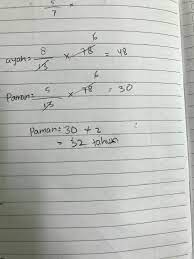 5/7 x
ayah = 8/13 x 78 6 = 48
Paman = 5/13 x 78 6 = 30
Paman = 30 + 2
= 32 tahun